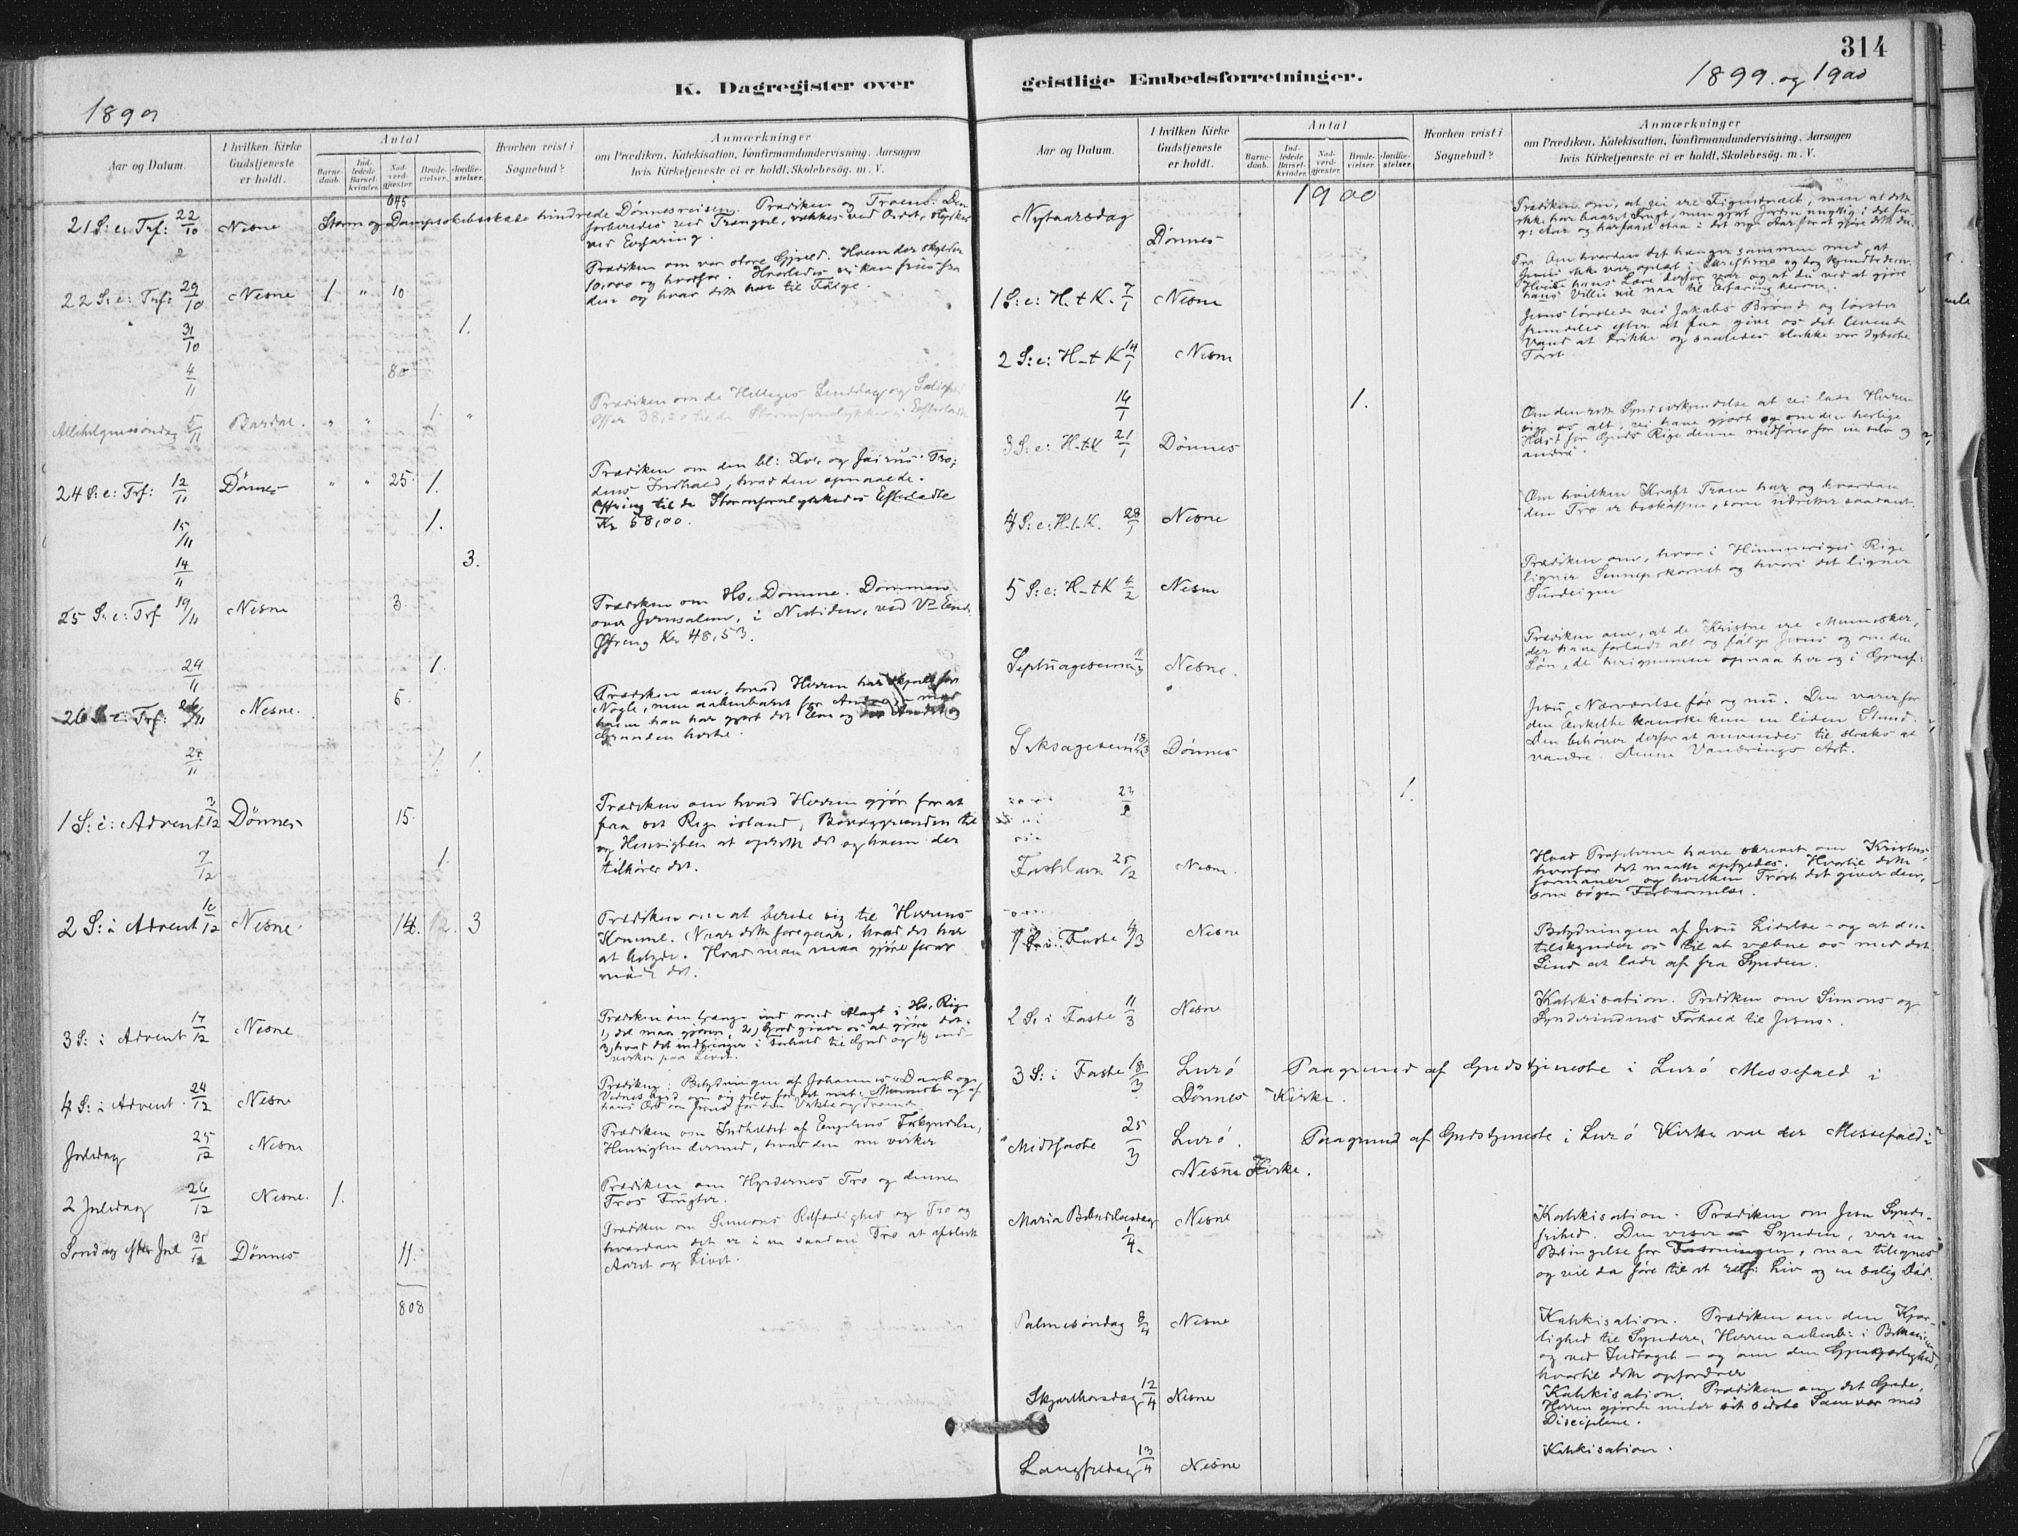 314
K. Dagregister over geistlige Embedsforretninger.
1899
1899. og 1900
Aar og Datum.
I hvilken Kirke Gudstjeneste er holdt.
Antal
Barnedaab.
Indledede Barselkvinder.
Nadverdgjester.
Brudevielser.
Jordfæstelser.
Hvorhen reist i Sognebud?
Anmærkninger
om Prædiken, Katekisation, Konfirmandundervisning. Aarsagen
hvis Kirketjeneste ei er holdt, Skolebesøg. m. V.
645
21 S: e: Trf: 22/10 Nesne Storm og Dampskibsskade hindrede Dønnesreisen. Prædiken og Troens. Den
forberedes ved Trængsel, vækkes ved Ordet, styrkes
ved Erfaring.
Prædiken om vor store Gjæld. Hvem der skylder
22 S: e: Trf: 29/10 Nesne 1 " 10 10,000 og hvorfor. Hvorledes vi kan fries fra
den og hvad dette har til Følge.
31/10 1.
4/11 80
Prædiken om de Helliges Sinddag og Salighed
Allehelgensøndag 5/11 Bardal. " " 1. " Offer 38,20 til de Stormforulykkedes Efterladte
24 S: e: Trf: 12/11 Dønnes " " 25 1. Prædiken om den bl: Kv. og Jairus Tro;
dens Indhold, hvad den opnaaede.
Ofring til de Stormforulykkedes Efterladte
Kr 58,00.
15/11 1.
14/11 3.
25 S: e: Trf 19/11 Nesne 3. Prædiken om Hs. Domme. Dommen
over Jerusalem, i Nutiden, ved Vs Ende.
Ofring Kr 48,53.
24/11 1.
26 S: e: Trf: 26/11 Nesne. 6. Prædiken om, hvad Herren har skjult for
Nogle, men aabenbaret for Andre,
hvem han har gjort det Ene og det Andet
Grunden hertil.
28/11 1. 1.
1 S: i: Advent 3/12 Dønnes 15. Prædiken om hvad Herren gjør for at
faa sit Rige istand, Bevæggrunden til
og Hensigten at oprette det og hvem der
tilhører det.
7/12 1.
2 S: i Advent 10/12 Nesne. 14. 12. 3 Prædiken om at berede sig til Herrens
Komme. Naar dette foregaar, hvad det har
at betyde. Hvad man maa gjøre for at
møde det.
3 S: i Advent 17/12 Nesne Prædiken om trænge ind med Magt i Hs. Rige
1, det maa gjøres, 2, Gud giver os at gjøre det.
3, hvad det indbringer i Forhold til Gud og
virker paa Livet.
4 S: i Advent 24/12 Nesne Prædiken: Betydningen af Johannes's Daab og
Vidnesbyrd om sig selv for det nat: Menneske og af
hans Ord om Jesus for den Vakte og Troende
Juledag 25/12 Nesne Prædiken om Indholdet af Englens Forkyndelse,
Hensigten dermed, hvad den nu virker
2 Juledag 26/12 Nesne. 1. Prædiken om Hyrdernes Tro og denne
Tros Frugter.
Søndag efter Jul 31/12 Dønnes 11. Prædiken om Simeons Retfærdighed og Tro og
hvordan det er i en saadan Tro at afslutte
Aaret og Livet.
808
Aar og Datum.
I hvilken Kirke Gudstjeneste er holdt.
Antal
Barnedaab.
Indledede Barselkvinder.
Nadverdgjester.
Brudevielser.
Jordfæstelser.
Hvorhen reist i Sognebud?
Anmærkninger
om Prædiken, Katekisation, Konfirmandundervisning. Aarsagen
hvis Kirketjeneste ei er holdt, Skolebesøg. m. V.
1900
Nytaarsdag Dønnes Prædiken om, at vi ere Figentræet, men at dette
ikke har baaret Frugt, men gjort Jorden unyttig i det for-
g: Aar og har faaet staa i det nye Aar for at gjøre dette
1 S: e: H. t K. 7/1 Nesne Om hvordan det hænger sammen med, at
Jesus ikke var oplært i Skrifterne og dog kjendte dem.
Hvis hans Lære derfor var og at du ved at gjøre
hans Villie vil naa til Erfaring herom.
2 S: e: H-t K 14/1 Nesne Jesus tørstede ved Jakobs Brønd og tørster
fremdeles efter at faa give os det levende
Vand at drikke og saaledes slukke vor dybeste
Tørst
16/1 1.
3 S: e: H-t K 21/1 Dønnes Om den rette Syndserkjendelse at vi lade Herren
sige os alt, vi have gjort og om den herlige
Høst for Guds Rige denne medfører for en selv og
andre.
4 S: e: H. t. K. 28/1 Nesne Om hvilken Kraft Troen har og hvordan
den Tro er beskaffen, som udretter saadant.
5 S: e: H-t K 4/2 Nesne Prædiken om, hvor i Himmeriges Rige
ligner Sennepskornet og hvori det ligner
Surdeigen
Septuagesima 11/2 Nesne. Prædiken om, at de Kristne ere Mennesker,
der have forladt alt og følge Jesus og om den
Løn, de herigjennem opnaa her og i Gjenf.
Seksagesima 18/2 Dønnes Jesu Nærværelse før og nu. Den varer for
den Enkelte kanske kun en liden Stund.
Den behøver derfor at anvendes til straks at
vandre. Denne Vandrings Art.
23/2 1.
Fastelavn 25/2 Nesne. Hvad Profeterne have skrevet om Kristus,
hvorfor det maatte opfyldes. Hvortil dette
formaner og hvilken Trøst det giver dem,
som søger Forbarmelse.
1 S: i: Faste 4/3 Nesne Betydningen af Jesu Lidelse - og at den
tilskynder os til at væbne os med det
Sind at lade af fra Synden.
2 S: i Faste 11/3 Nesne Katekisation. Prædiken om Simons og
Synderindens Forhold til Jesus.
3 S: i Faste 18/3 Lurø Paagrund af Gudstjeneste i Lurø Messefald i
Dønnes Kirke.
Midtfaste 25/3 Lurø. Paagrund af Gudstjeneste i Lurø Kirke var der Messefald i
Nesne Kirke.
Maria Bebudelsesdag 1/4. Nesne Katekisation. Prædiken om Jesu Synde-
frihed. Den viser os Synden, var en
Betingelse for Forsoningen, maa tilegnes
og vil da føre til et retf: Liv og en salig Død.
Palmesøndag 8/4 Nesne Katekisation. Prædiken om den Kjær-
lighed til Syndere, Herren aabenb: i Bethania
og ved Indtoget - og om den Gjenkjærlighed,
hvortil dette opfordrer
Skjærthorsdag 12/4 Nesne Katekisation. Prædiken om det Gode,
Herren gjorde under sit sidste Samvær med
Disciplene.
Langfredag 13/4 Nesne Katekisation.